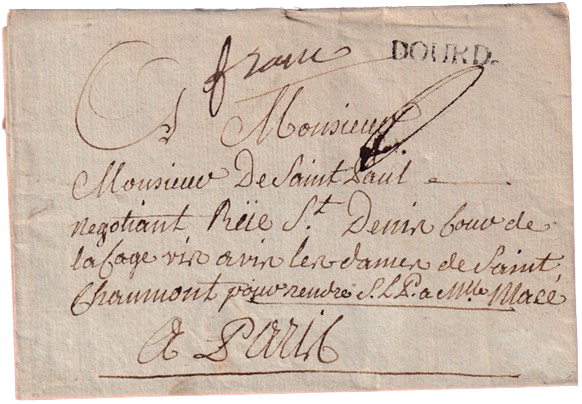 franc DOURD.
A Monsieur
Monsieur De Saint Paul
negotiant Rüe S.t Denis Cour de
la Cage vis avis les dames de Saint
Chaumont pour rendre S.L.P. a Mlle Macé
A Paris